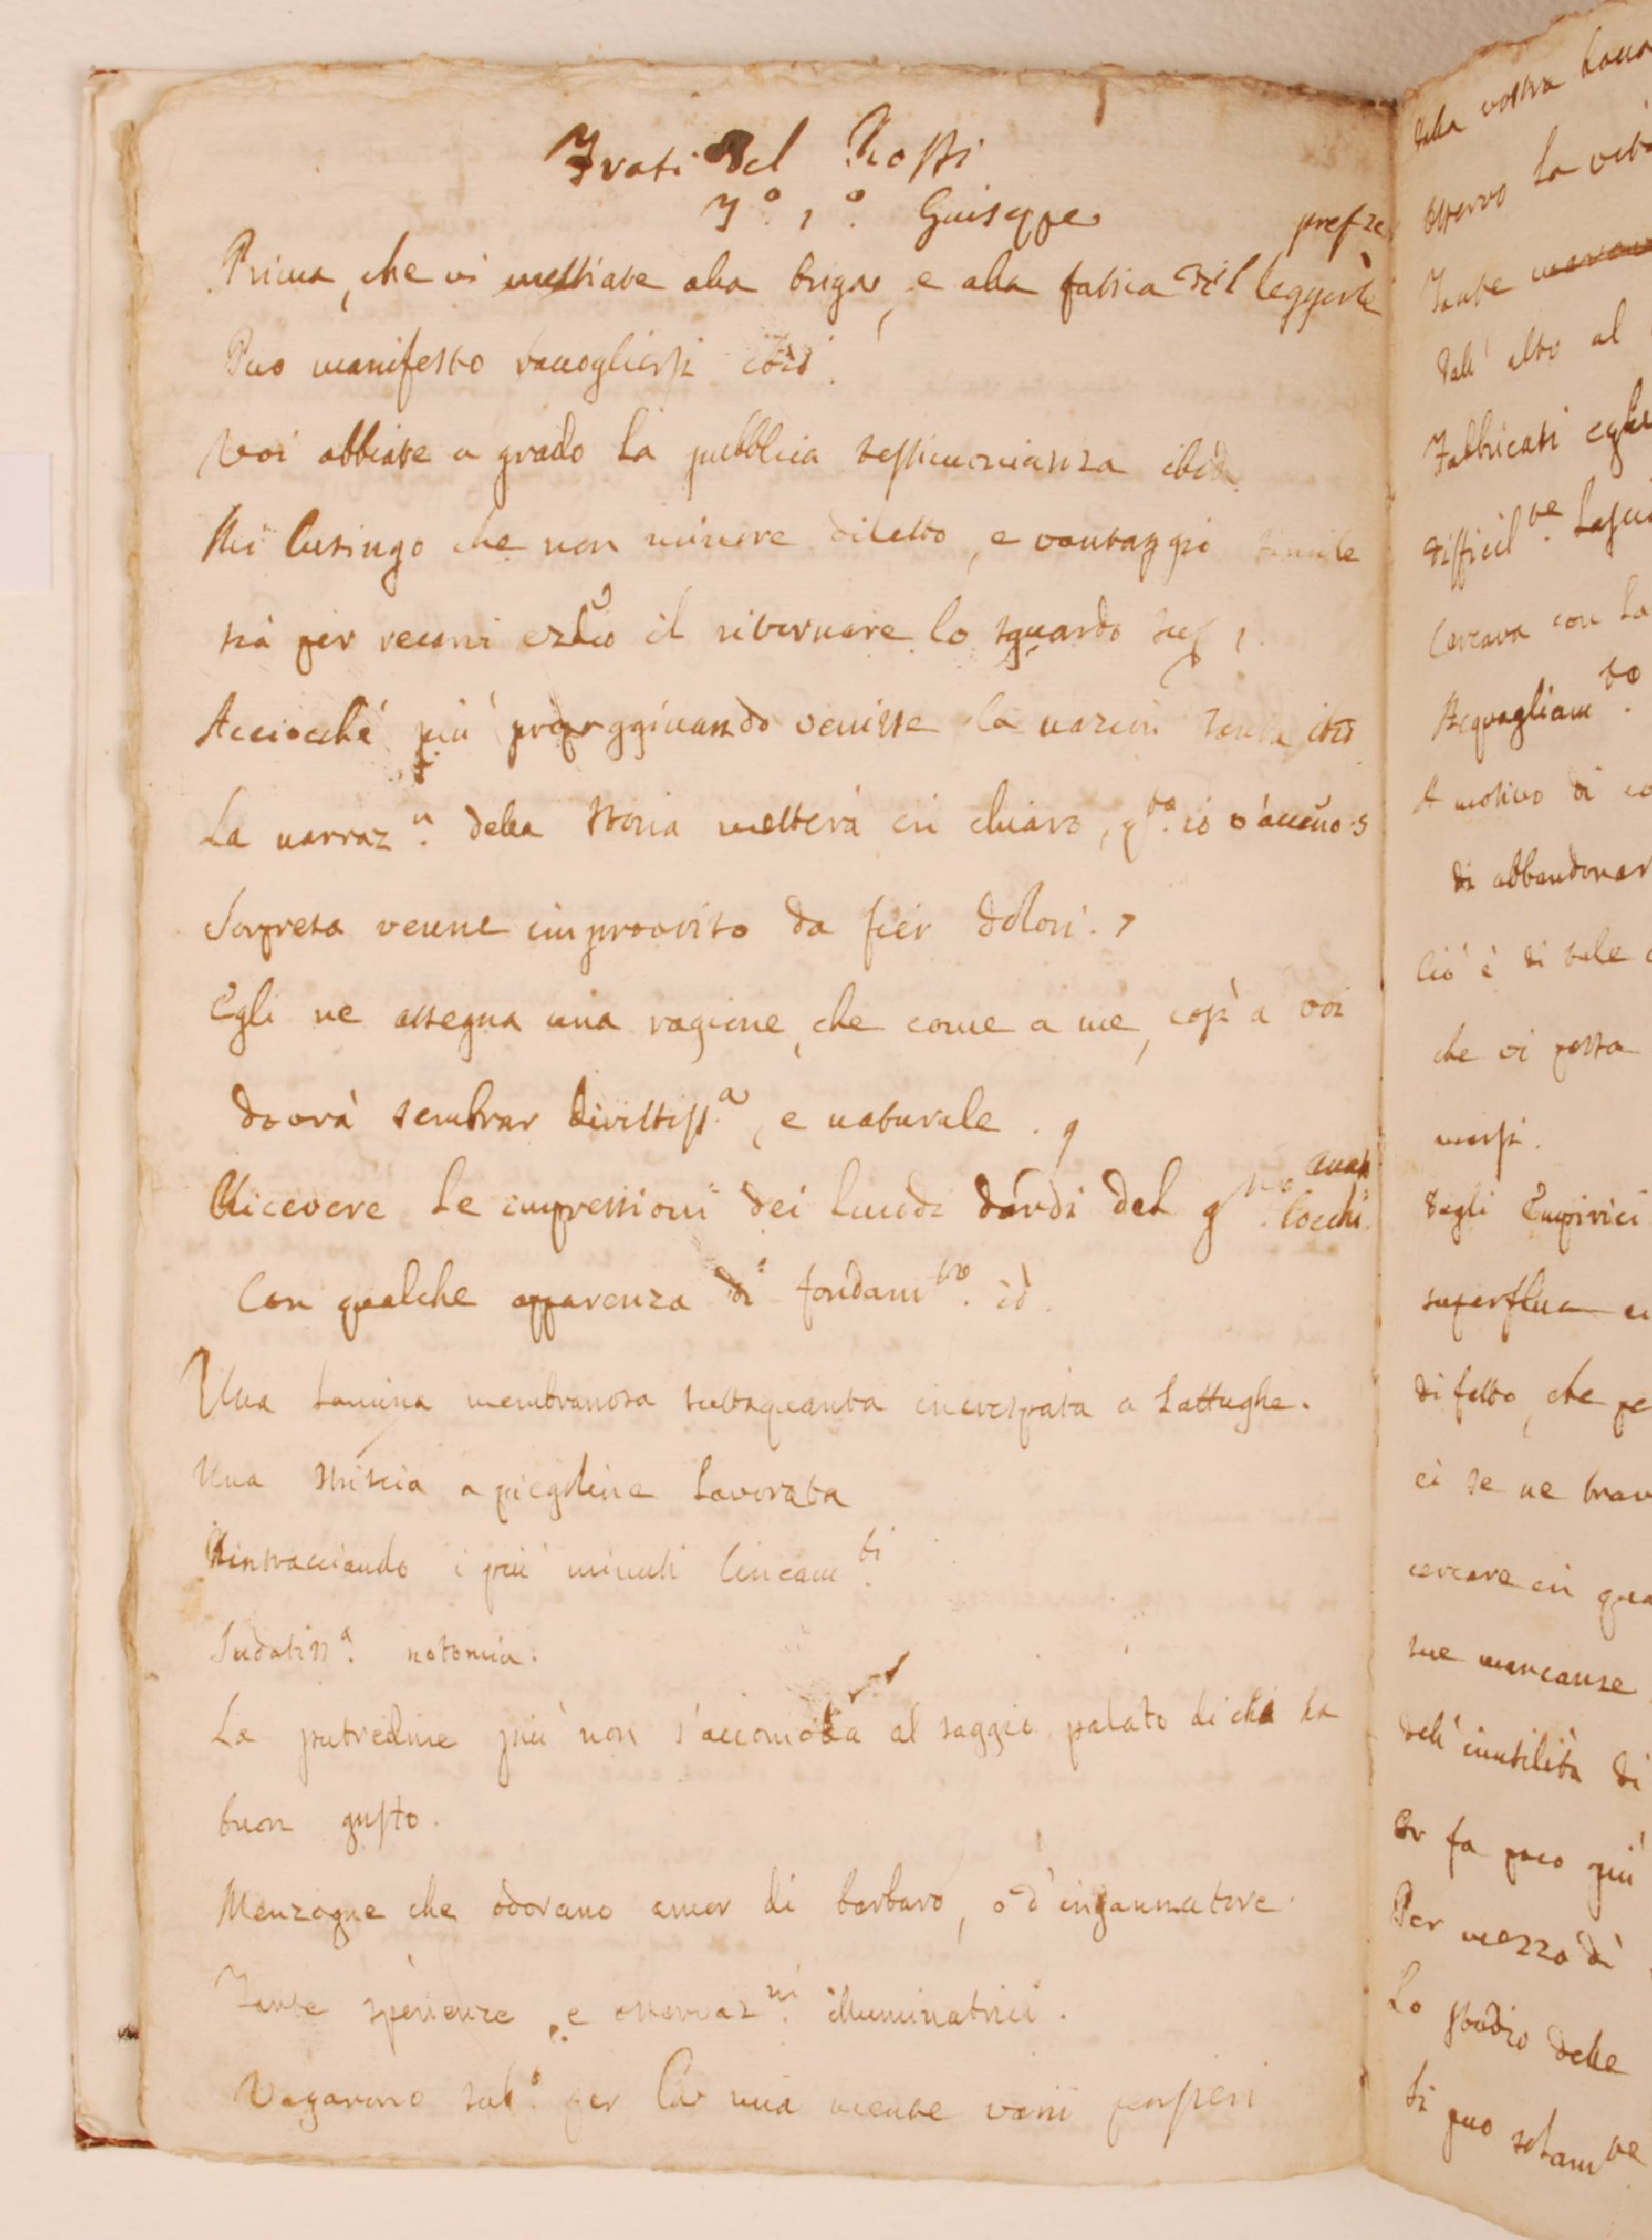 Frasi del Rossi
T.º 1.º Guiseppe
prefze
Prima, che vi mettiate alla briga, e alla fatica di leggerle
Può manifesto raccogliersi ibid.
Voi abbiate a grado la pubblica testimonianza ibid.
Mi lusingo che non minore diletto, e vantaggio simile
sia per recarvi il ritornare lo sguardo
Acciocchè più venisse la
La narraz.n della storia metterà in chiaro, q.to io v'accenno. 5
Sorpresa venne improvviso da fier dolori. 7
Egli ne assegna una ragione, che come a me, così a voi
dovrà sembrar dirittiss.a, e naturale. 9
Ricevere le impressioni dei lucidi dardi del
Cocchi.
Con qualche apparenza di fondam.to id.
Una lamina membranosa tuttaquanta increspata a lattughe.
Una striscia a piegoline lavorata
Rintracciando i più minuti lineam.ti
Sudatiss.a notomia.
La putredine più non s'accomoda al saggio palato di chi ha
buon gusto.
Menzogne che odorano ancor di barbaro, o d'ingannatore.
Tante sperienze, e osservaz.ni illuminatrici.
Vagarono sub.o per la mia mente varii pensieri
della vostra
osservo la
Tante
dall' alto al
Fabbricati
difficil.te
Cercava con la
Agguagliam.to
A motivo di
di abbandonar
Ciò è di tale
che vi possa
marsi.
degli Empirici
superflua
difetto, che
ci se ne
cercare in
sue mancanze
dell' inutilità di
Or fa poco più
Per mezzo di
Lo studio delle
Si può solam.te